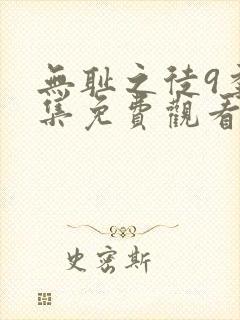 無耻之徒9
集免費觀看
史密斯